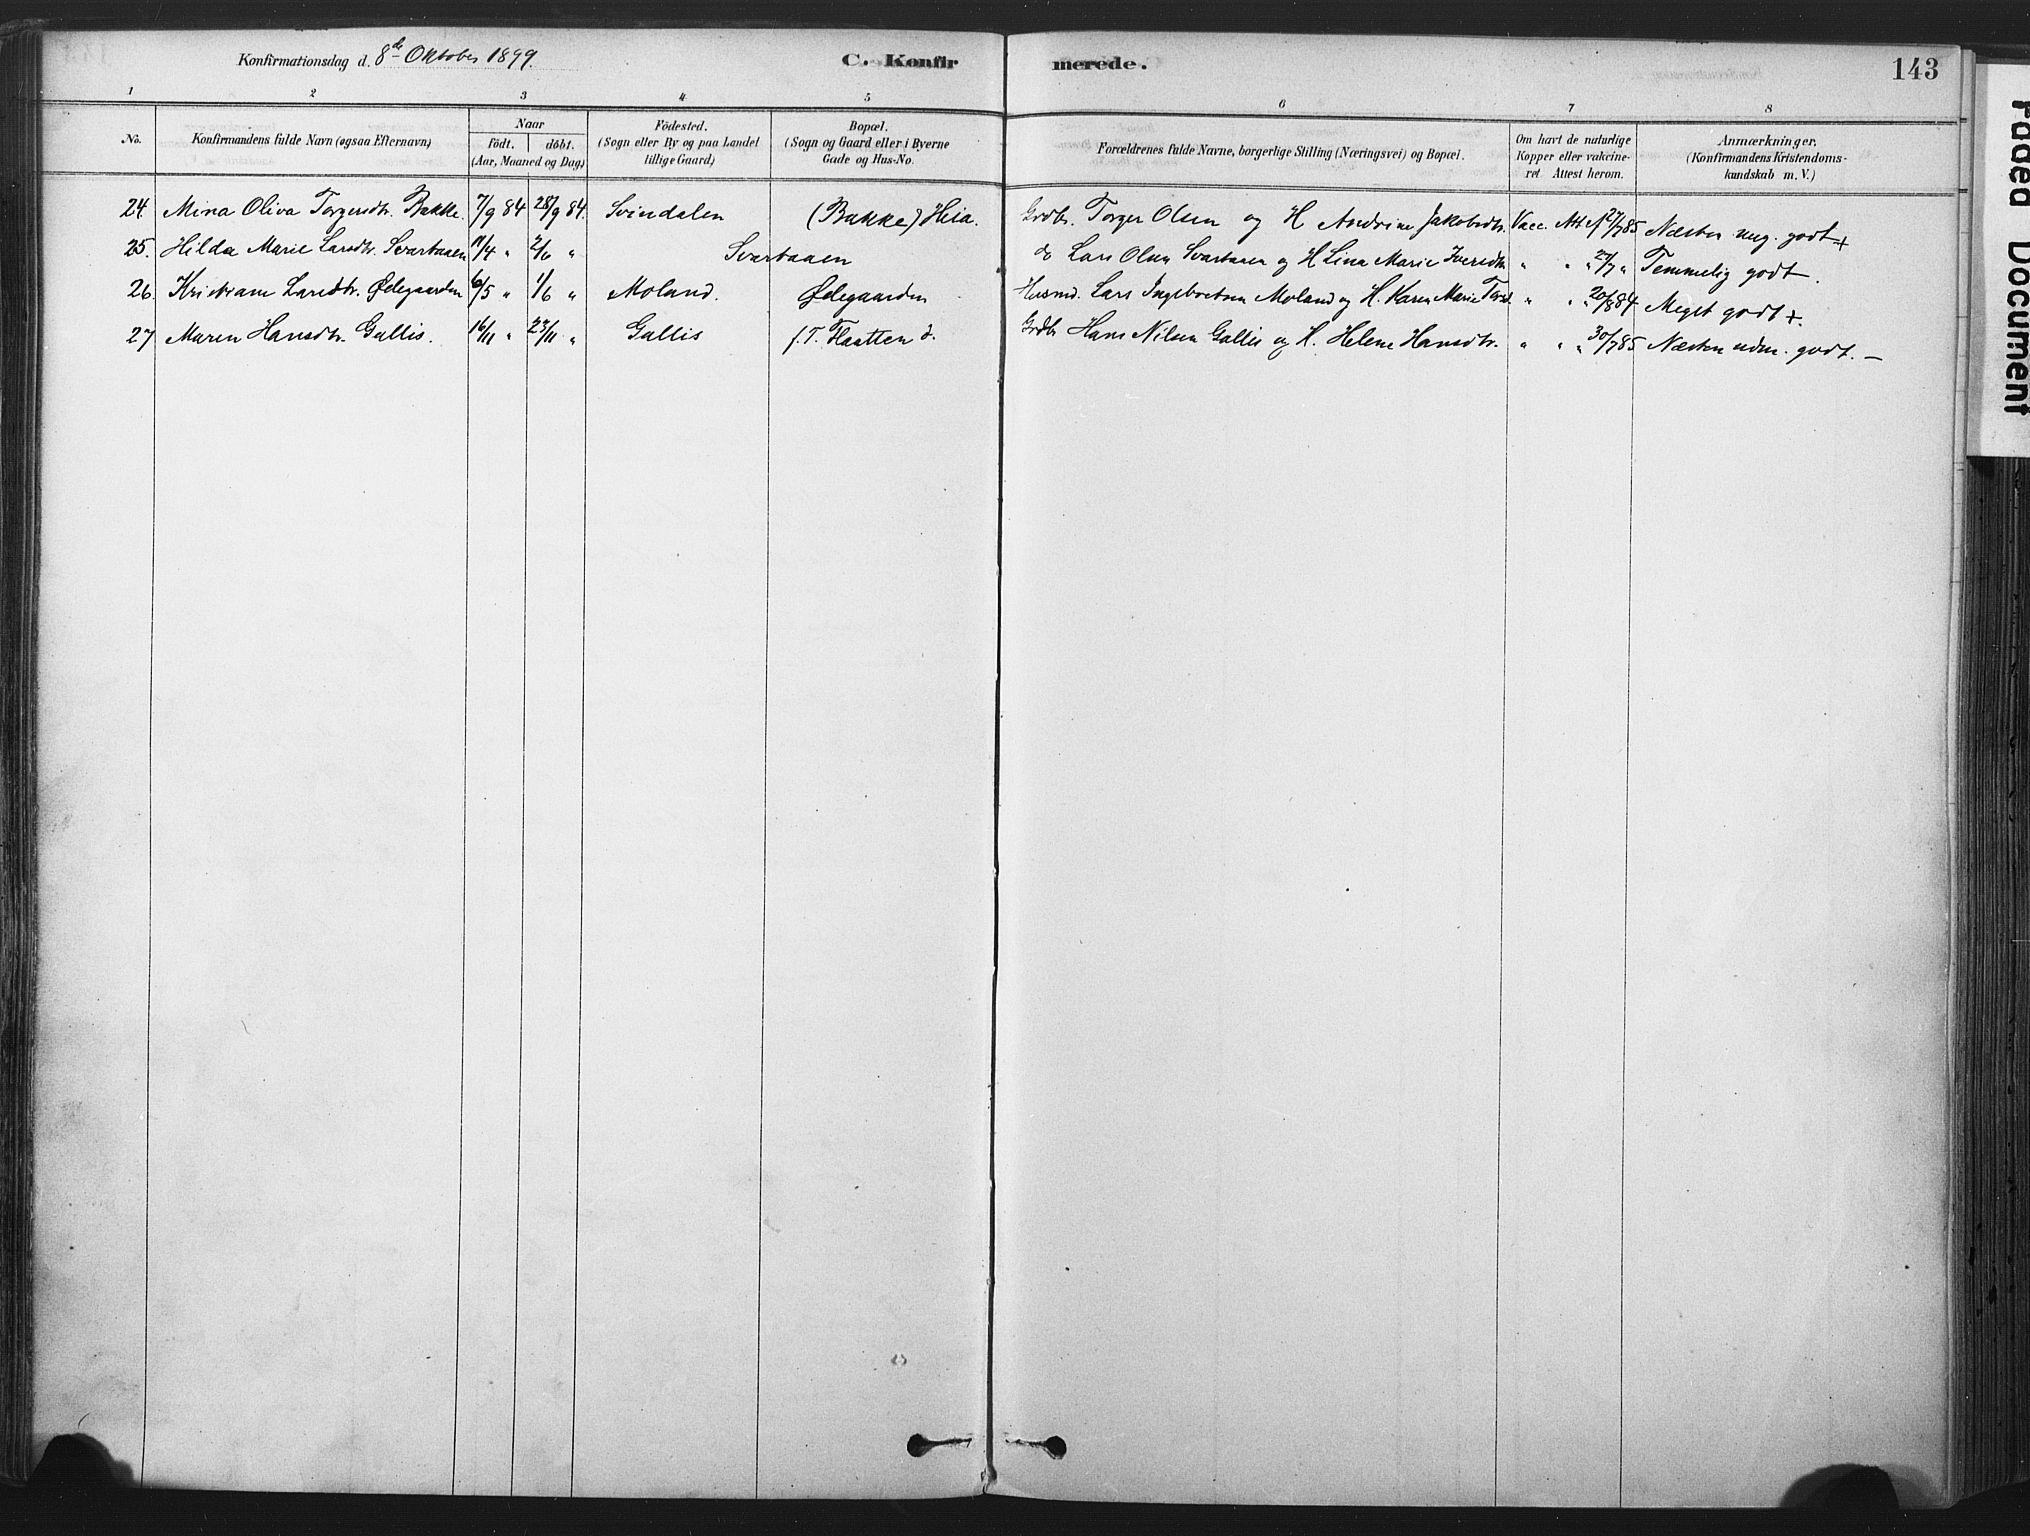 Konfirmationsdag d. 8de Oktober 1899.
C. Konfirmerede.
143
1 2 3 4 5 6 7 8
No. Konfirmandens fulde Navn (ogsaa Efternavn) Naar födt. döbt. (Aar, Maaned og Dag) Födested. (Sogn eller By og paa Landet tillige Gaard) Bopæl. (Sogn og Gaard eller i Byerne Gade og Hus-No. Forældrenes fulde Navne, borgerlige Stilling (Næringsvei) og Bopæl. Om havt de naturlige Kopper eller vakcineret Attest herom. Anmærkninger. (Konfirmandens Kristendomskundskab m. V.)
24. Mina Oliva Torgersdtr. Bakke. 7/9 84 28/9 84. Svindalen (Bakke) Heia. Grdbr. Torger Olsen og H Andrine Jakobsdtr. Vacc. Att. 27/7 85 Næsten meg. godt +
25. Hilda Marie Larsdtr. Svartaaen 11/4 " 2/6 " Svartaaen do Lars Olsen Svartaaen og H Lina Marie Iversdtr " " " 27/7 " Temmelig godt.
26. Larsdtr. Ødegaarden 6/5 " 1/6 " Moland. Ødegaarden Husmd. Lars Moland og H. Karen Marie " " " 20/8 84 Meget godt +.
27 Maren Hansdtr. Gallis. 16/11 " 23/11 " Gallis f. T. Flaatten Grdbr Hans Nilsen Gallis og H. Helene Hansdtr. " " " 30/7 85 Næsten udm. godt. —
Paged Document